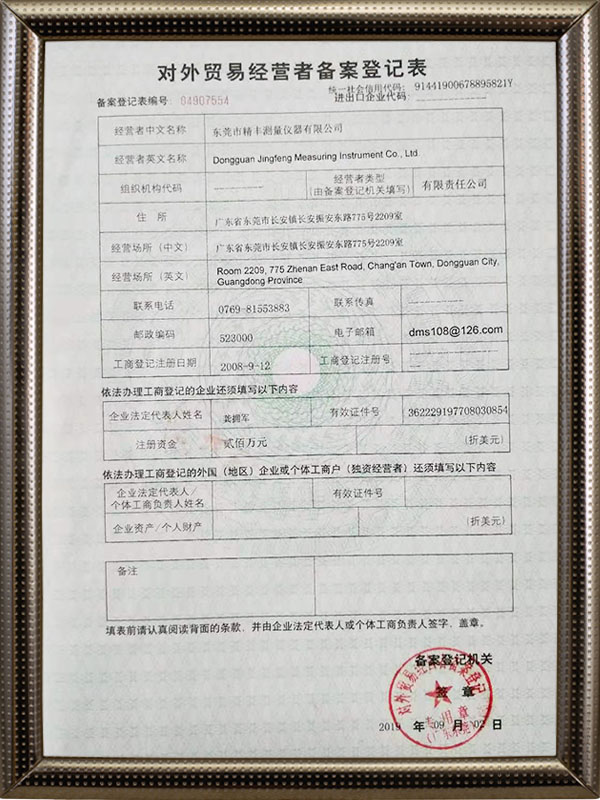 对外贸易经营者备案登记表
统一社会信用代码：91441900678895821Y
备案登记表编号：04907554
进出口企业代码：
经营者中文名称 东莞市精丰测量仪器有限公司
经营者英文名称 Dongguan Jingfeng Measuring Instrument Co., Ltd.
组织机构代码 ------------ 经营者类型（由备案登记机关填写） 有限责任公司
住 所 广东省东莞市长安镇长安振安东路775号2209室
经营场所（中文） 广东省东莞市长安镇长安振安东路775号2209室
经营场所（英文） Room 2209, 775 Zhenan East Road, Chang'an Town, Dongguan City,
Guangdong Province
联系电话 0769-81553883 联系传真 ------------
邮政编码 523000 电子邮箱 dms108@126.com
工商登记注册日期 2008-9-12 工商登记注册号
依法办理工商登记的企业还须填写以下内容
企业法定代表人姓名 龚拥军 有效证件号 362229197708030854
注册资金 贰佰万元 （折美元）
依法办理工商登记的外国（地区）企业或个体工商户（独资经营者）还须填写以下内容
企业法定代表人/
个体工商负责人姓名 有效证件号
企业资产/个人财产 （折美元）
备注
填表前请认真阅读背面的条款，并由企业法定代表人或个体工商负责人签字、盖章。
备案登记机关
签 章
对外贸易经营者备案登记
专用章
（广东东莞）
2019 年 09 月 02 日